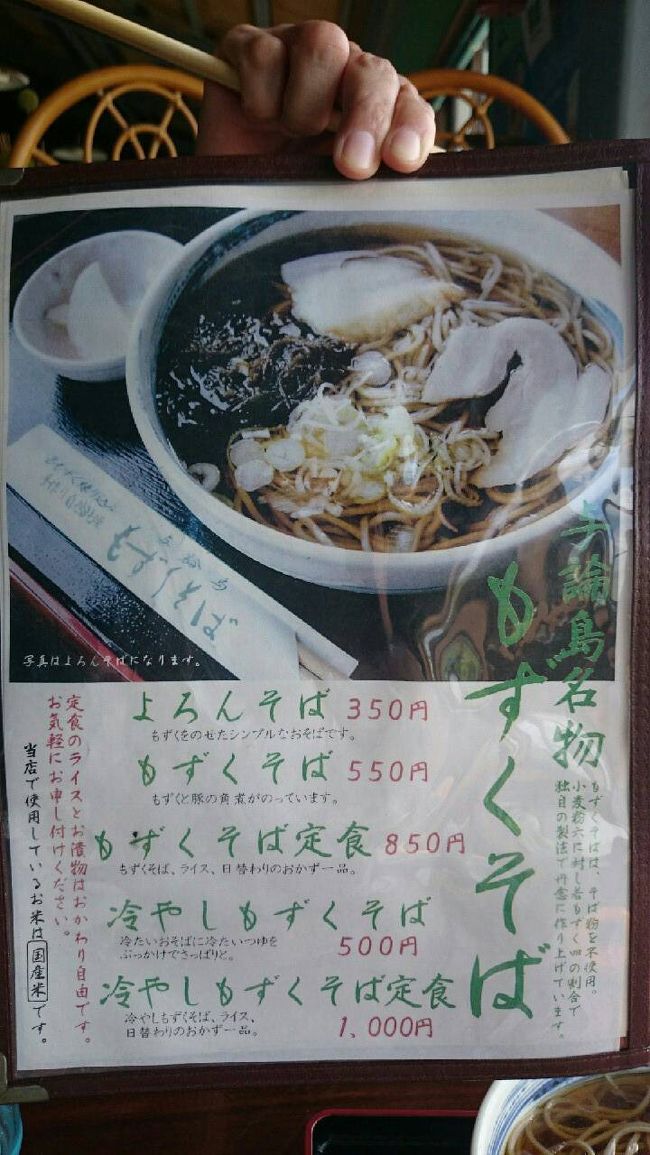 与論島名物
もずくそば
もずくそばは、そば粉を不使用。
小麦粉六に対し若もずく四の割合で
独自の製法で丹念に作り上げています。
与論島
もずくそば
写真はよろんそばになります。
よろんそば 350円
もずくをのせたシンプルなおそばです。
もずくそば 550円
もずくと豚の角煮がのっています。
もずくそば定食 850円
もずくそば、ライス、日替わりのおかず一品。
冷やしもずくそば
冷たいおそばに冷たいつゆを
ぶっかけでさっぱりと。
500円
冷やしもずくそば定食
冷やしもずくそば、ライス、
日替わりのおかず一品。
1,000円
定食のライスとお漬物はおかわり自由です。
お気軽にお申し付けください。
当店で使用しているお米は国産米です。